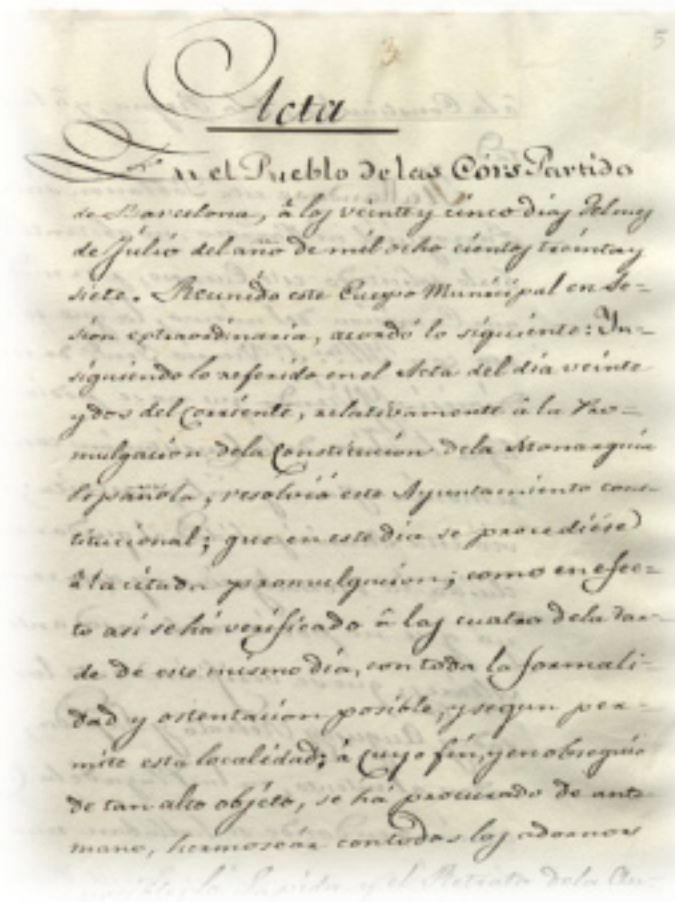 5
3
Acta
En el Pueblo de las Córs Partido
de Barcelona, â los veinte y cinco dias del mes
de Julio del año de mil ocho cientos treinta y
siete. Reunido este Cuerpo Municipal en Se-
sión extraordinaria, acordó lo siguiente: In-
siguiendo lo referido en el Acta del dia veinte
y dos del corriente, relativamente â la Pro-
mulgacion de la Constitucion de la Monarquia
Española, resolvió este Ayuntamiento cons-
titucional; que en este dia se procediése
â la citada promulgacion; como en efec-
to asi se há verificado â las cuatro de la tar-
de de este mismo dia, con toda la formali-
dad y ostentacion posible, y segun per-
mite esta localidad; â cuyo fin, y en obsequio
de tan alto objéto, se há procurado de ante
mano, hermosear con todos los adornos
la Lapida y el Retrato de la Au-